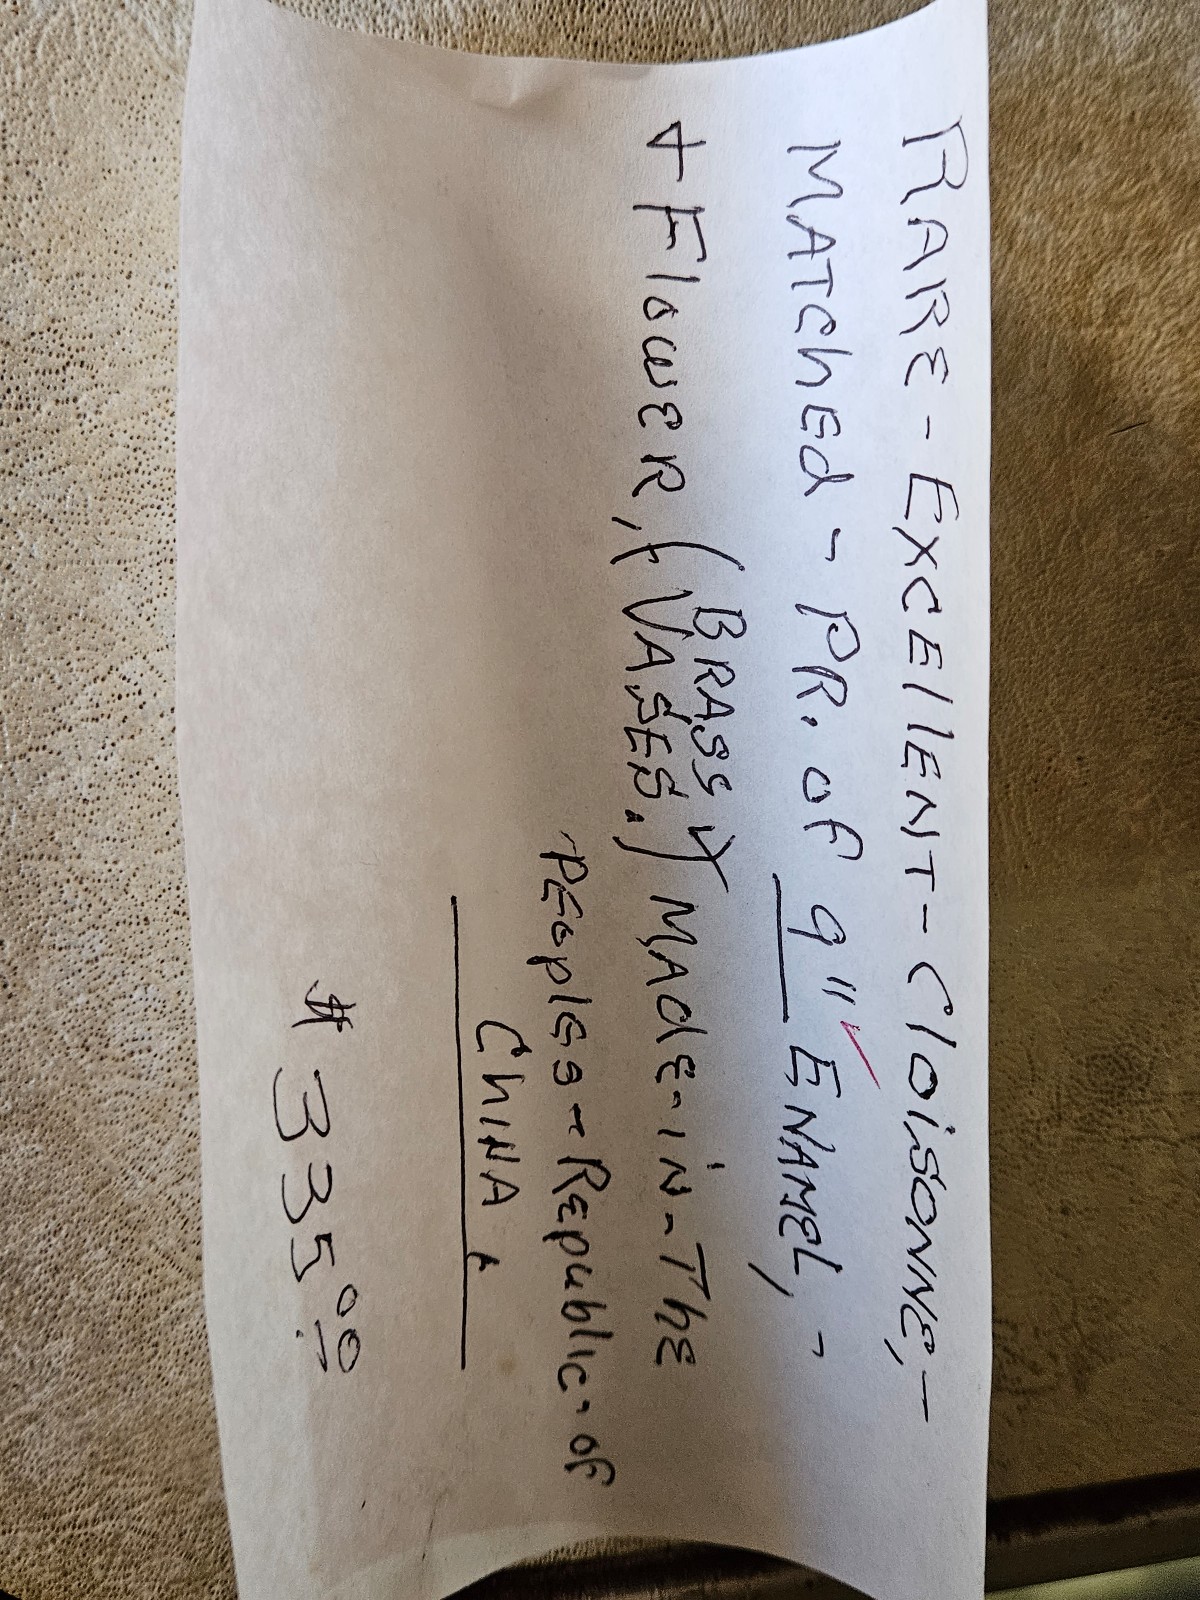 RARE - EXCEllENT - CloisONNE, -
MATChEd - PR. of 9" ENAMEl, -
+ FlowER, (BRASS VASES.) MAdE-iN-ThE
PEoplEs - REpublic - of
ChINA.
$335.00